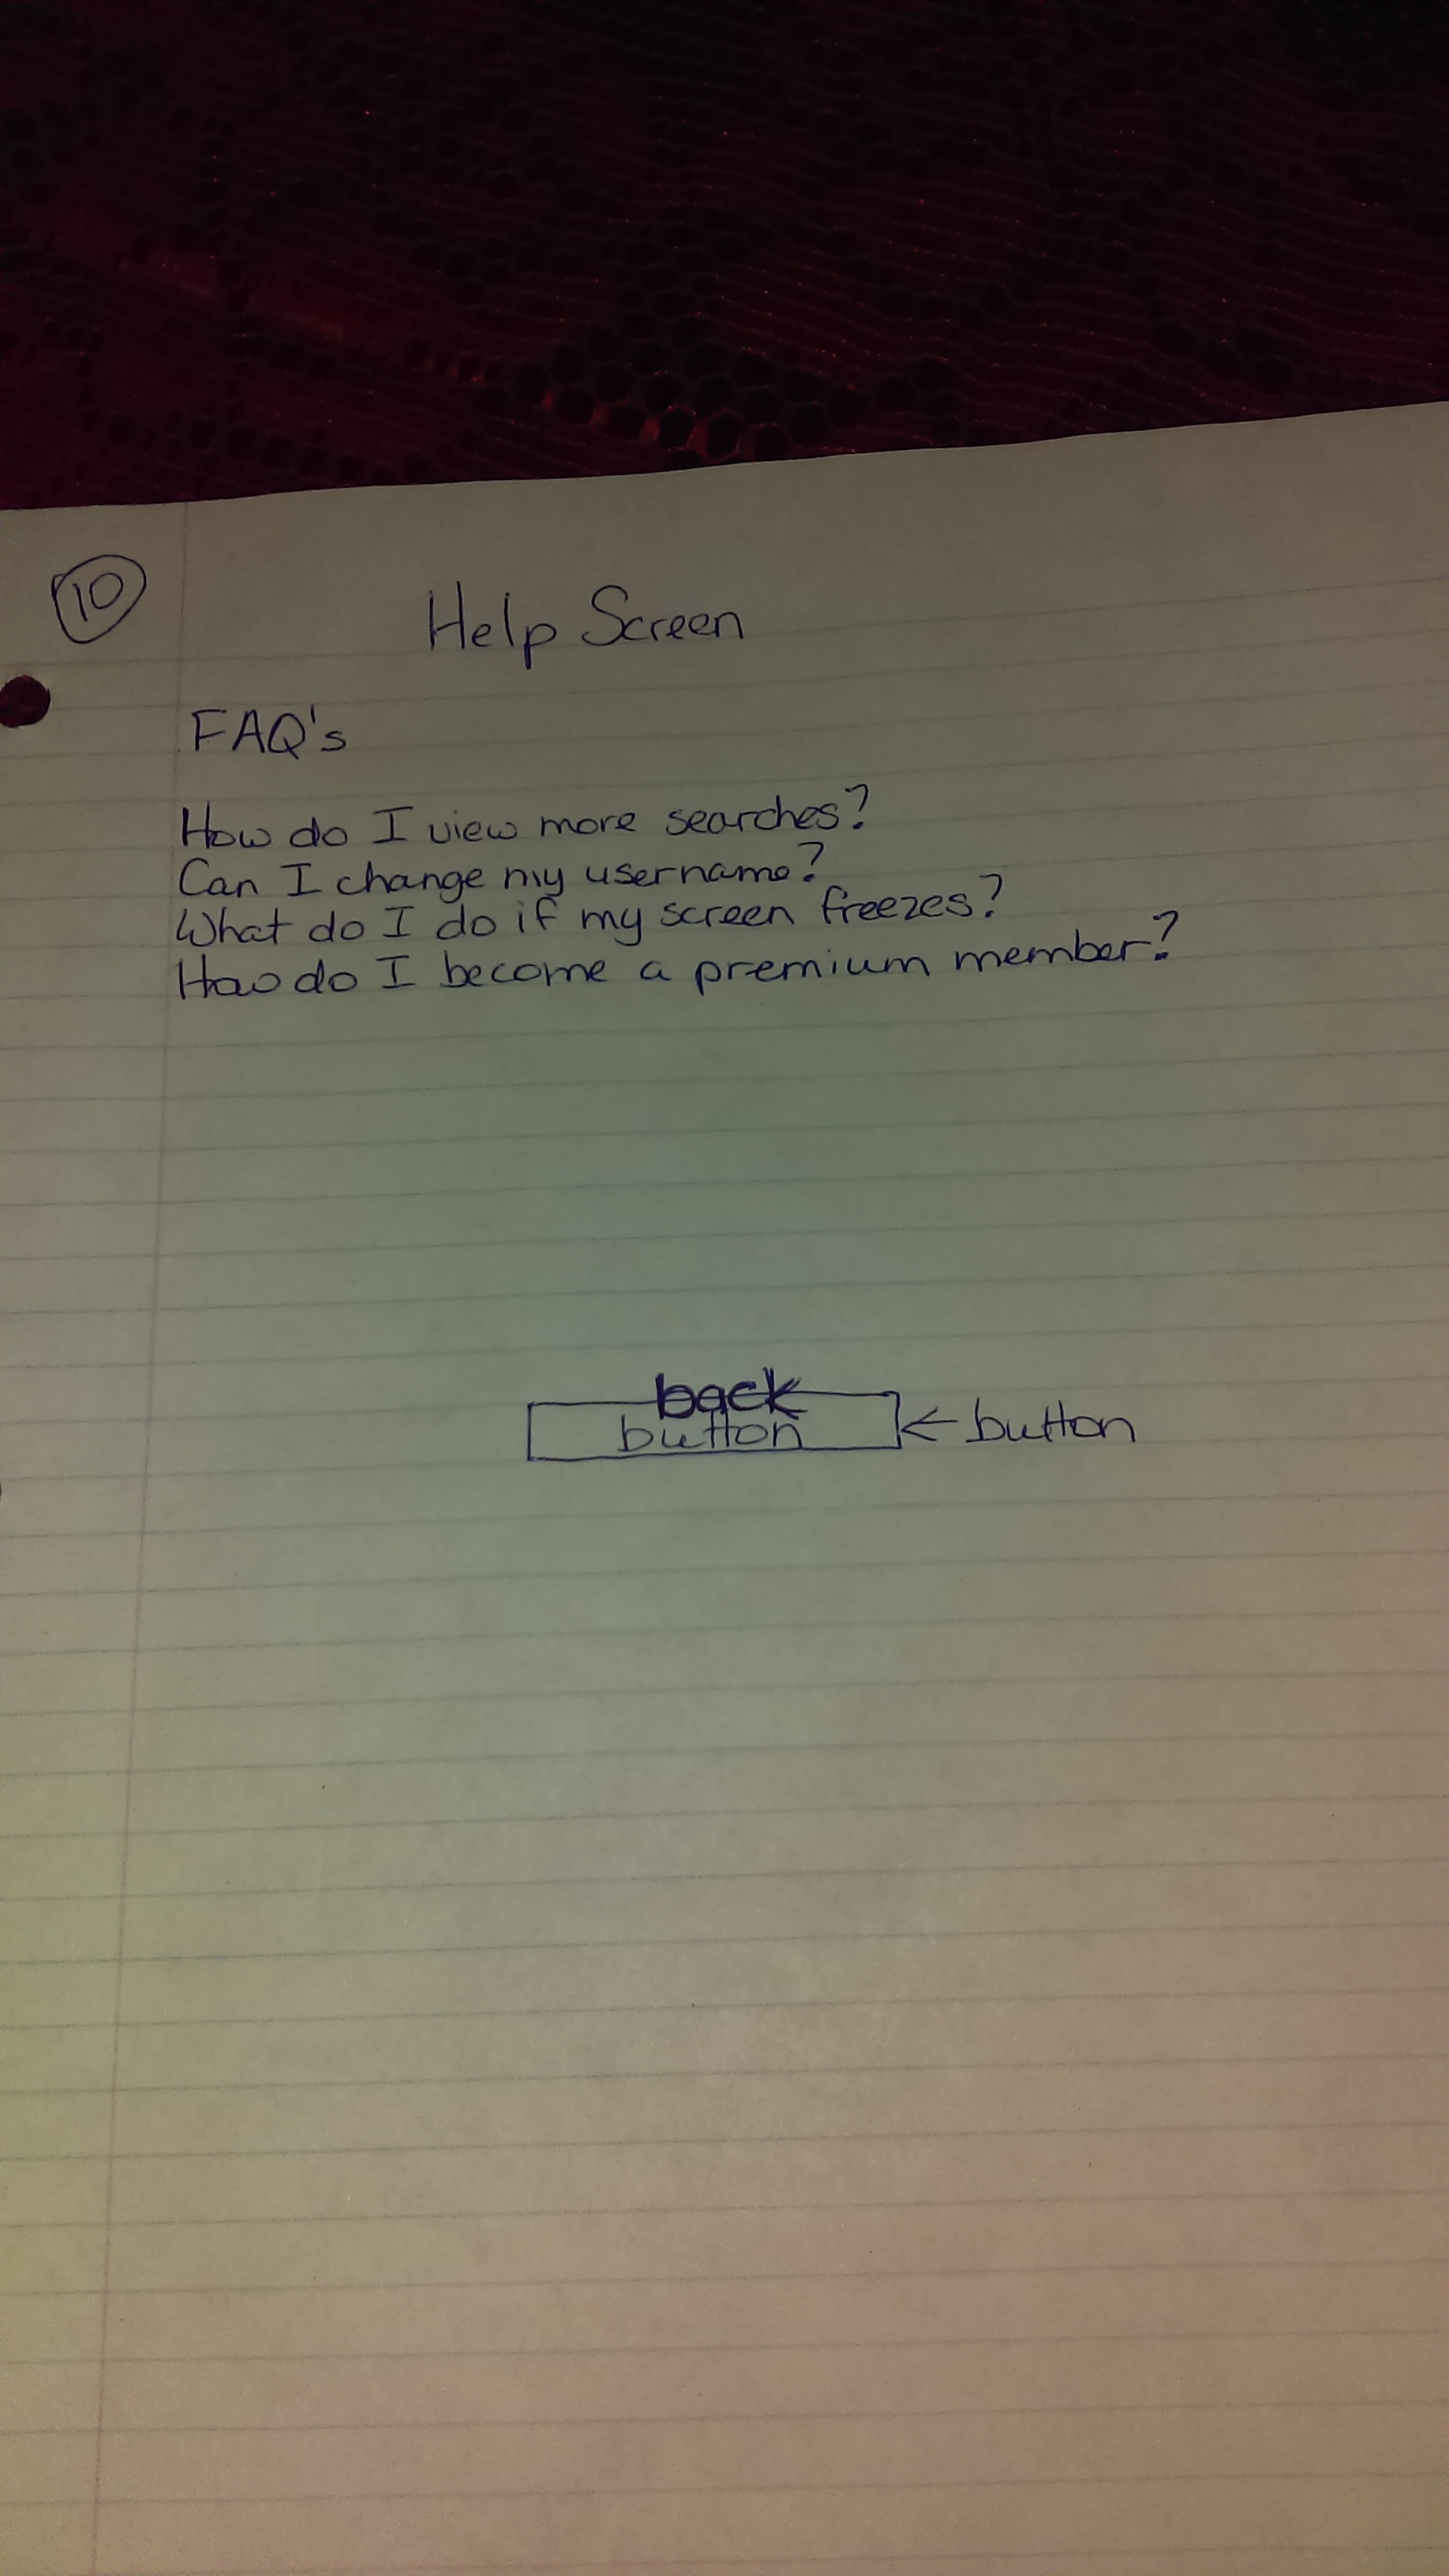 10
Help Screen
FAQ's
How do I view more searches?
Can I change my username?
What do I do if my screen freezes?
How do I become a premium member?
back
button ← button